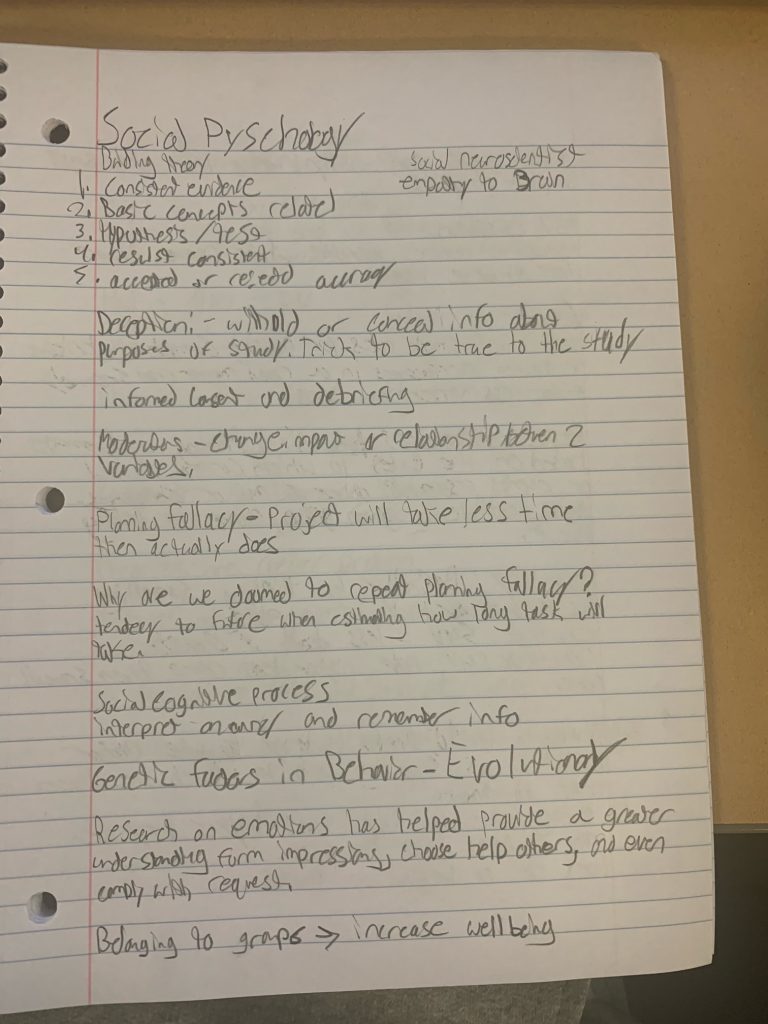 Social Pyschology
Building theory
social neuroscientist
empathy to Brain
1. Consistent evidence
2. Basic concepts related
3. Hypothesis / test
4. result consistent
5. accepted or rejected accuracy
Deception: - withold or conceal info about
purposes of study. Trick to be true to the study
informed consent and debriefing
Moderators - change impact or relationship between 2
variables,
Planning fallacy - Project will take less time
then actually does
Why are we doomed to repeat planning fallacy?
tendecy to future when estimating how long task will
take.
Social cognitive process
interpret analyze and remember info
Genetic factors in Behavior - Evolutionary
Research on emotions has helped provide a greater
understanding form impressions, choose help others, and even
comply with request,
Belonging to groups → increase wellbeing